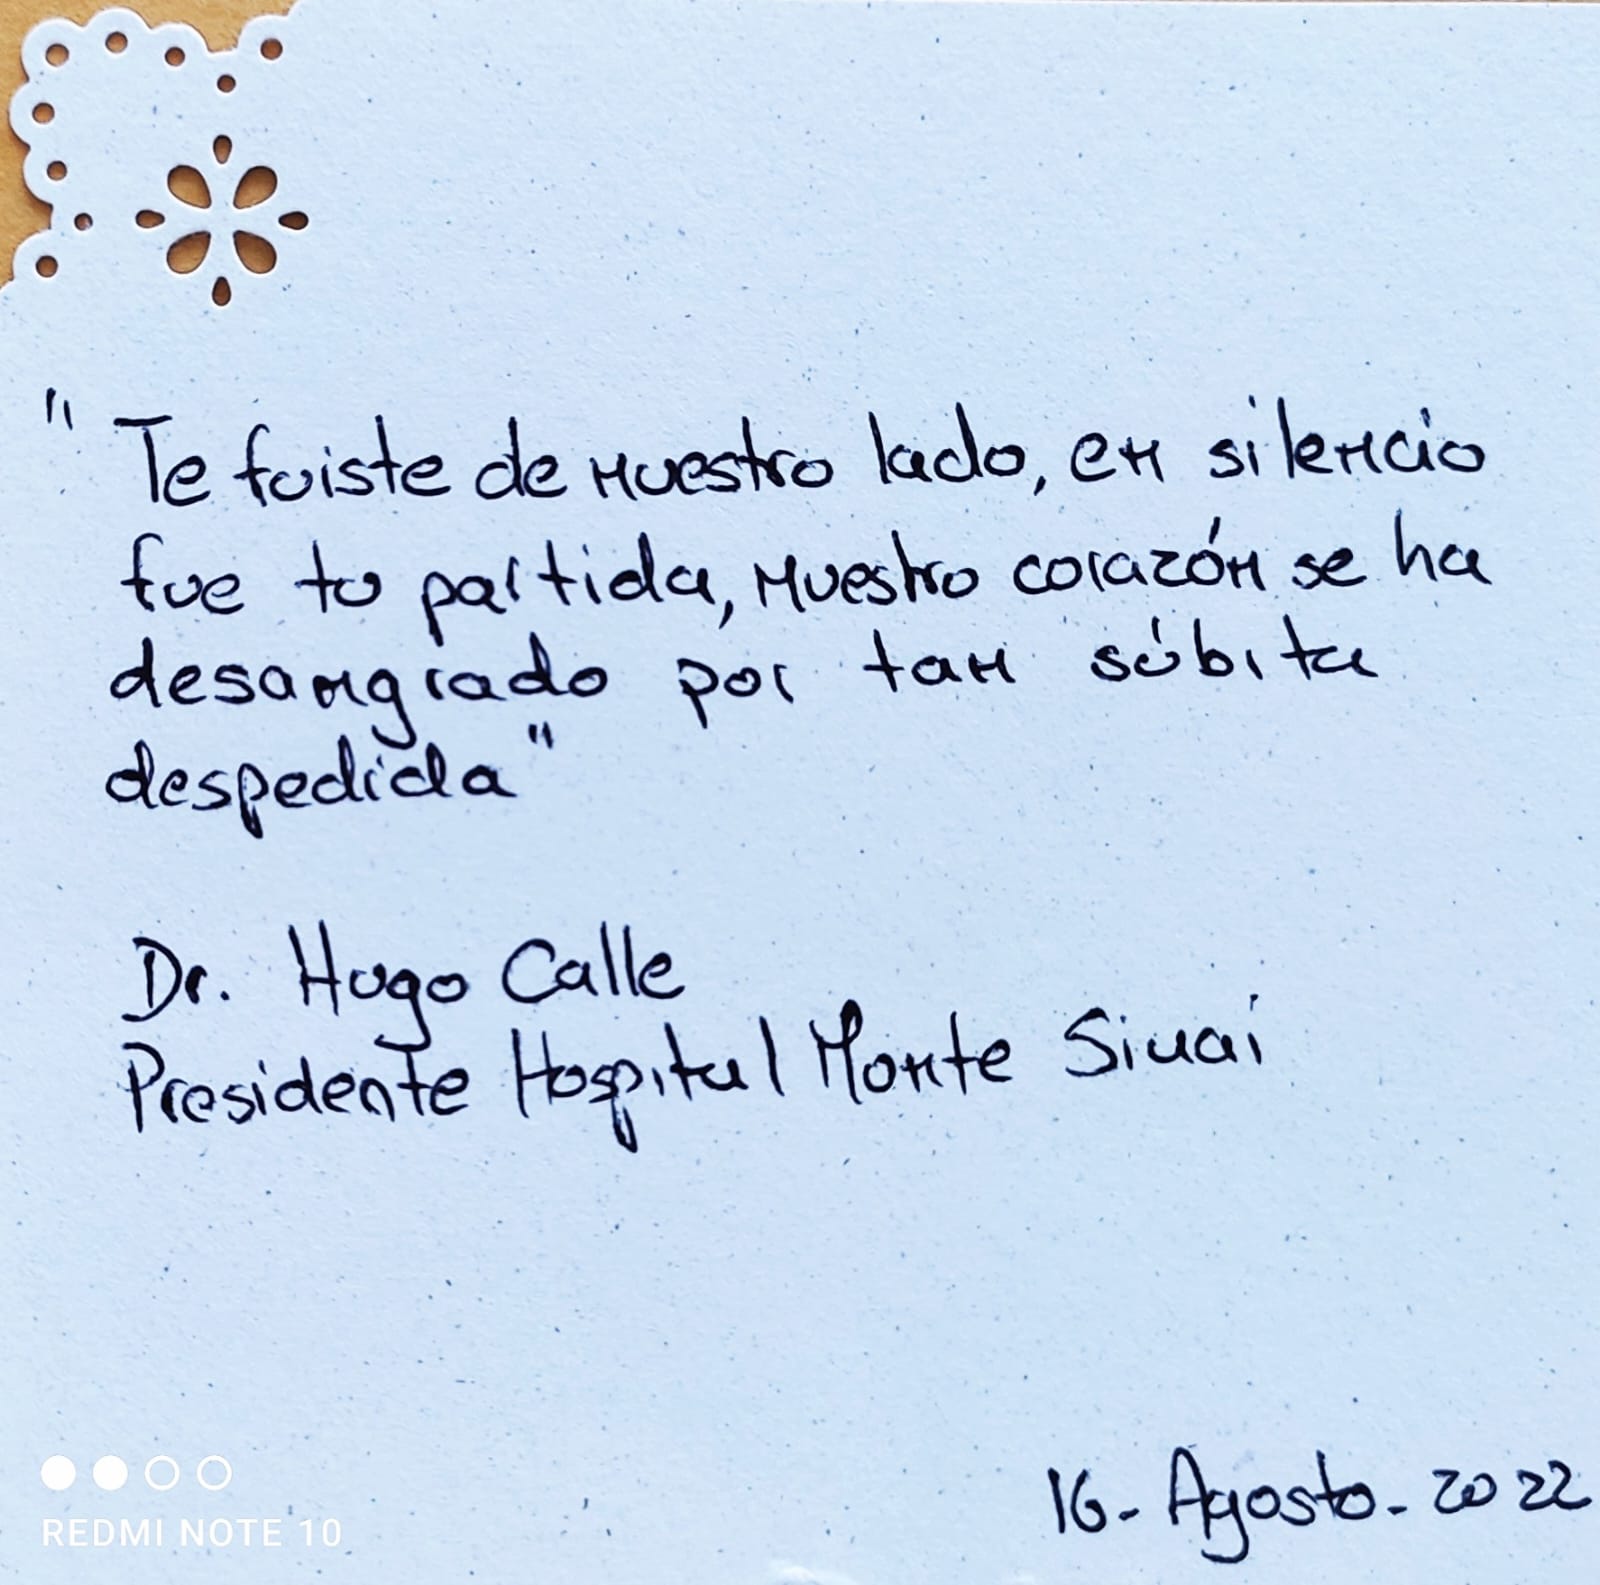 "Te fuiste de nuestro lado, en silencio
fue tu partida, nuestro corazón se ha
desangrado por tan súbita
despedida"
Dr. Hugo Calle
Presidente Hospital Monte Sinai
16- Agosto- 2022
REDMI NOTE 10